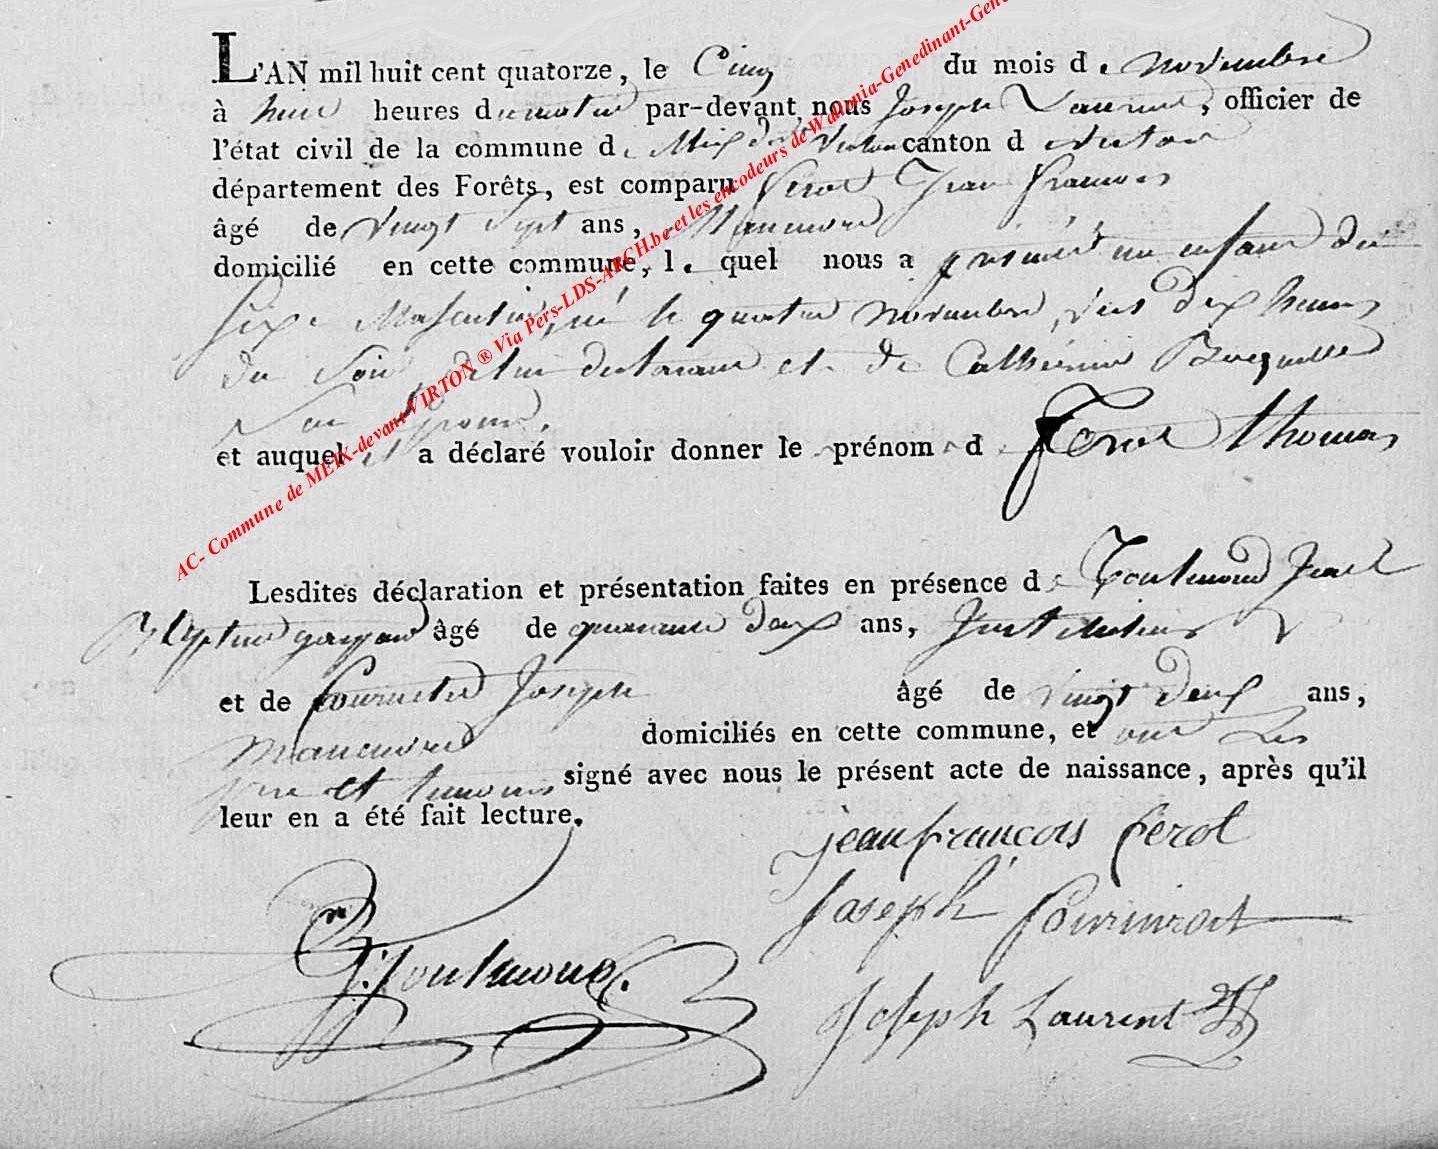 L'AN mil huit cent quatorze, le Cinq du mois d. novembre
à heures du matin par-devant nous Joseph Laurent, officier de
l'état civil de la commune de Meix devt Virton canton de virton
département des Forêts, est comparu ferot Jean françois
âgé de vingt Sept ans, Manœuvre
domicilié en cette commune, l. quel nous a présenté un enfant du
Sexe Masculin, né le quatre novembre, vers dix heures
du Soir, de lui declarant et de Cathérinne
Son Epouse.
et auquel il a déclaré vouloir donner le prénom d ferot thomas
Lesdites déclaration et présentation faites en présence de toulmond Jean
âgé de quarante deux ans,
et de Joseph âgé de vingt deux ans,
manœuvre domiciliés en cette commune, et ont Les
pere et temoins signé avec nous le présent acte de naissance, après qu'il
leur en a été fait lecture.
jean francois ferot
Joseph
J: toulmond.
Joseph Laurent
AC- Commune de MEIX-devant-VIRTON ® Via Pers-LDS-ARCH.be et les encodeurs de Wallonia-Genedinant-Gene